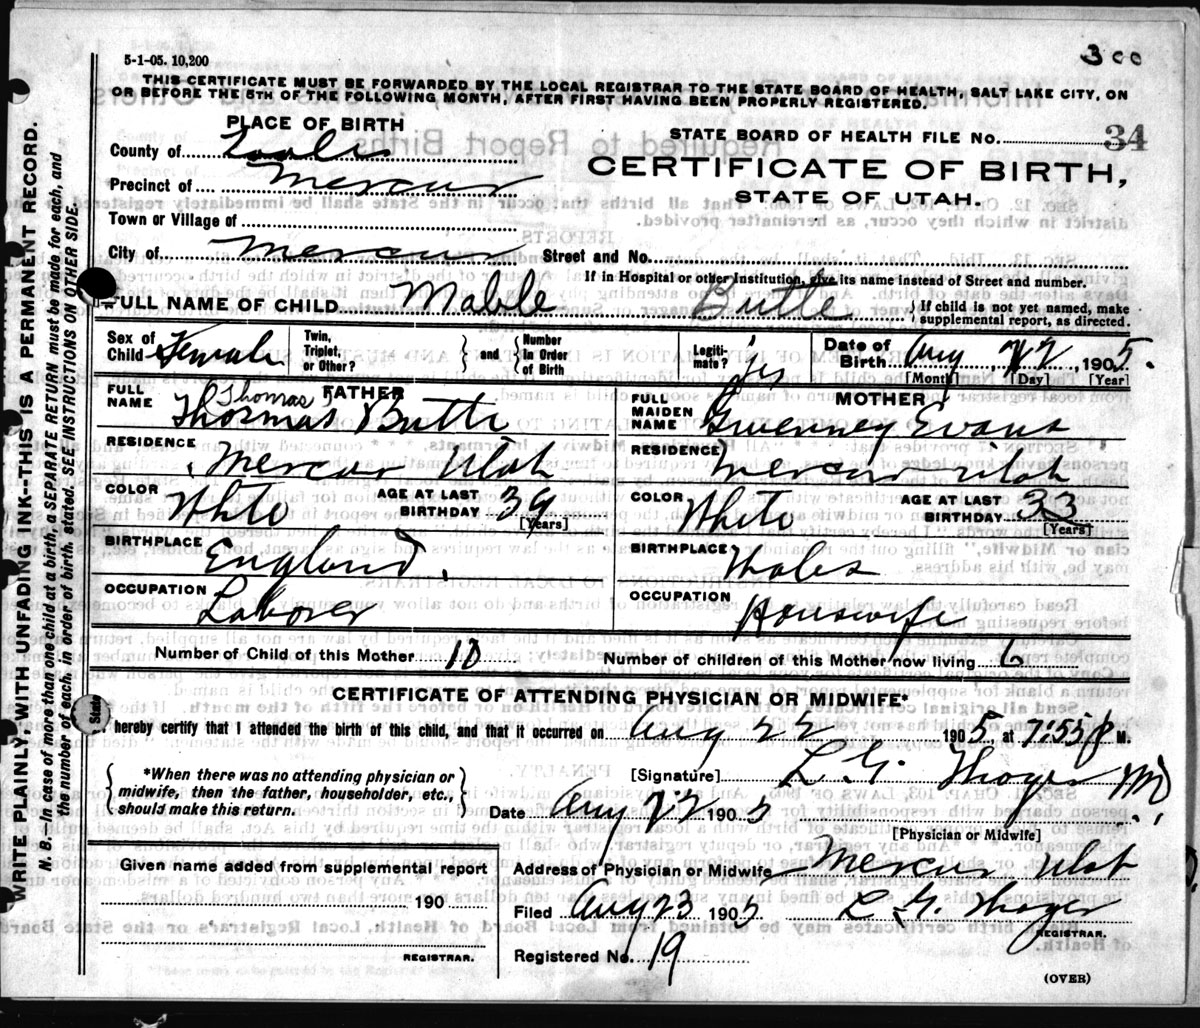 5-1-05. 10,200
300
THIS CERTIFICATE MUST BE FORWARDED BY THE LOCAL REGISTRAR TO THE STATE BOARD OF HEALTH, SALT LAKE CITY, ON
OR BEFORE THE 5TH OF THE FOLLOWING MONTH, AFTER FIRST HAVING BEEN PROPERLY REGISTERED.
PLACE OF BIRTH
County of Tooele
Precinct of Mercur
Town or Village of
City of Mercur
STATE BOARD OF HEALTH FILE No. 34
CERTIFICATE OF BIRTH,
STATE OF UTAH.
Street and No.
If in Hospital or other Institution, give its name instead of Street and number.
FULL NAME OF CHILD Mable Buttle
If child is not yet named, make
supplemental report, as directed.
Sex of Child Female
Twin, Triplet, or Other?
and
Number In Order of Birth
Legiti-mate? yes
Date of Birth Aug 22 1905.
[Month] [Day] [Year]
FATHER
FULL NAME Thomas
Thormas Buttle
RESIDENCE
Mercur Utah
COLOR White
AGE AT LAST BIRTHDAY 39
[Years]
BIRTHPLACE England.
OCCUPATION Laborer
MOTHER
FULL MAIDEN NAME Gwenney Evans
RESIDENCE Mercur Utah
COLOR White
AGE AT LAST BIRTHDAY 33
[Years]
BIRTHPLACE Wales
OCCUPATION Housewife
Number of Child of this Mother 10
Number of children of this Mother now living 6
CERTIFICATE OF ATTENDING PHYSICIAN OR MIDWIFE*
I hereby certify that I attended the birth of this child, and that it occurred on Aug 22 1905 at 7:55 P M.
*When there was no attending physician or
midwife, then the father, householder, etc.,
should make this return.
[Signature] L. G. MD
Date Aug 22 1905
[Physician or Midwife]
Given name added from supplemental report
190
REGISTRAR.
Address of Physician or Midwife Mercur Utah
Filed Aug 23 1905 L. G.
REGISTRAR.
Registered No. 19
(OVER)
WRITE PLAINLY, WITH UNFADING INK--THIS IS A PERMANENT RECORD.
N. B.—In case of more than one child at a birth, a SEPARATE RETURN must be made for each, and
the number of each, in order of birth, stated. SEE INSTRUCTIONS ON OTHER SIDE.